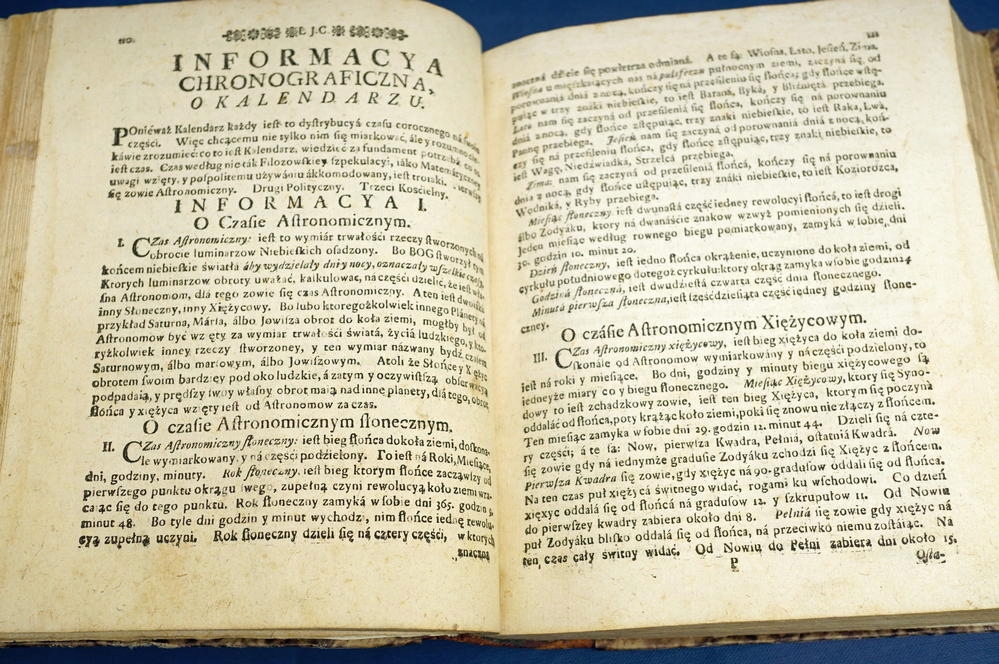 110.
Ł J.C.
INFORMACYA
CHRONOGRAFICZNA,
O KALENDARZU.
POnieważ Kalendarz każdy ieſt to dyſtrybucyá czáſu corocznego ná ſwoie
części. Więc chcącemu nie tylko nim ſię miarkowáć, ále y rozumnie cie-
káwie zrozumieć: co to ieſt Kalendarz, wiedzieć zá fundament potrzebá co to
ieſt czas. Czas według nie ták Filozowſkiey ſzpekulácyi, iáko Matematyczney
uwagi wzięty, y poſpolitemu używániu ákkomodowany, ieſt troiáki. Pierwſzy
ſię zowie Aſtronomiczny. Drugi Polityczny. Trzeci Koſcielny.
INFORMACYA I.
O Czaſie Aſtronomicznym.
I. CZas Aſtronomiczny: ieſt to wymiár trwáłości rzeczy ſtworzonych ná
obrocie luminarzow Niebieſkich oſadzony. Bo BOG ſtworzył tym
końcem niebieſkie świátłá áby wydzielały dni y nocy, oznaczały wſzelkie czáſy.
Ktorych luminarzow obroty uważáć, kálkulowáć, ná części dzielić, że ieſt wła-
ſna Aſtronomom, dlá tego zowie ſię czas Aſtronomiczny. A ten ieſt dwoiáki
inny Słoneczny, inny Xiężycowy. Bo lubo ktoregożkolwiek innego Plánety ná
przykład Saturna, Márſa, álbo Jowiſza obrot do koła ziemi, mogłby być od
Aſtronomow być wzięty zá wymiár trwáłości świátá, życiá ludzkiego, y kto-
ryżkolwiek inney rzeczy ſtworzoney, y ten wymiár názwany bydź czáſem
Saturnowym, álbo marſowym, álbo Jowiſzowym. Atoli że Słońce y Xiężyc
obrotem ſwoim bárdziey pod oko ludzkie, á zátym y oczywiſtſzą obſerwácyą
podpadáią, y prędſzy ſwoy włáſny obrot máią nád inne plánety, dlá tego, obrot
ſłońcá y xiężycá wzięty ieſt od Aſtronomow zá czas.
O czaſie Aſtronomicznym ſłonecznym.
II. CZas Aſtronomiczny ſłoneczny: ieſt bieg ſłońcá dokołá ziemi, doſkoná-
le wymiárkowany, y ná części podzielony. To ieſt ná Roki, Mieſiące,
dni, godziny, minuty. Rok ſłoneczny, ieſt bieg ktorym ſłońce zácząwſzy od
pierwſzego punktu okrągu ſwego, zupełną czyni rewolucyą koło ziemi wra-
cáiąc ſię do tego punktu. Rok ſłoneczny zamyká w ſobie dni 365. godzin 5.
minut 48. Bo tyle dni godzin y minut wychodzi, nim ſłońce iednę rewolu-
cyą zupełną uczyni. Rok ſłoneczny dzieli ſię ná cztery części, w ktorych
znaczną
111
znaczná dzieie ſię powietrza odmianá. A te ſą: Wioſna, Lato, Jeſień, Zima.
Wioſna u mieſzkáiących nas ná pułsferzu pułnocnym ziemi, záczyna ſię, od
porownánia dniá z nocą, kończy ſię ná przeſileniu ſię ſłońcá; gdy ſłońce wſtę-
puiąc w trzy znáki niebieſkie, to ieſt Baraná, Byká, y Bliźniętá przebiega.
Lato nam ſię záczyna od przeſilenia ſię ſłońcá, kończy ſię ná porownániu
dniá z nocą, gdy ſłońce zſtępuiąc, trzy znáki niebieſkie, to ieſt Raká, Lwá,
Pannę przebiega. Jeſień nam ſię záczyna od porownánia dniá z nocą, koń-
czy ſię ná przeſileniu ſłońcá, gdy ſłońce zſtępuiąc, trzy znáki niebieſkie, to
ieſt Wagę, Niedźwiádká, Strzelcá przebiega.
Zima: nam ſię záczyna od przeſilenia ſłońcá, kończy ſię ná porownániu
dniá z nocą, gdy ſłońce uſtępuiąc, trzy znáki niebieſkie, to ieſt Koziorożcá,
Wodniká, y Ryby przebiega.
Mieſiąc ſłoneczny: ieſt dwunaſtá część iedney rewolucyi ſłońcá, to ieſt drogi
álbo Zodyáku, ktory ná dwanáście znákow wzwyż pomienionych ſię dzieli.
Jeden mieſiąc według rownego biegu pomiarkowany, zamyká w ſobie, dni
30. godzin 10. minut 20.
Dzień ſłoneczny, ieſt iedno ſłońcá okrążenie, uczynione do koła ziemi, od
cyrkułu południowego do tegoż cyrkułu: ktory okrąg zamyká w ſobie godzin 24
Godziná ſłoneczná, ieſt dwudzieſtá czwartá część dniá ſłonecznego.
Minutá pierwſza ſłoneczna, ieſt ſześćdzieſiąta część iedney godziny ſłone-
czney.
O czáſie Aſtronomicznym Xiężycowym.
III. CZas Aſtronomiczny xiężycowy, ieſt bieg xiężycá do koła ziemi do-
ſkonale od Aſtronomow wymiarkowány y ná części podzielony, to
ieſt ná roki y mieſiące. Bo dni, godziny y minuty biegu xiężycowego ſą
iedneyże miáry co y biegu ſłonecznego. Mieſiąc Xiężycowy, ktory ſię Syno-
dowy to ieſt zchadzkowy zowie, ieſt ten bieg Xiężycá, ktorym ſię poczyná
oddaláć od ſłońcá, poty krążąc koło ziemi, poki ſię znowu nie złączy z ſłońcem.
Ten mieſiąc zamyká w ſobie dni 29. godzin 12. minut 44. Dzieli ſię ná czte-
ry części; á te ſą: Now, pierwſza Kwádra, Pełniá, oſtatniá Kwádrá. Now
ſię zowie gdy ná iednymże gráduſie Zodyáku zchodzi ſię Xiężyc z ſłońcem.
Pierwſza Kwadra ſię zowie, gdy xiężyc ná 90. gráduſow oddali ſię od ſłońcá.
Ná ten czas puł xiężycá świtnego widáć, rogámi ku wſchodowi. Co dzień
xiężyc oddalá ſię od ſłońcá ná gráduſow 12. y ſzkrupułow 11. Od Nowiu
do pierwſzey kwádry zábiera około dni 8. Pełniá ſię zowie gdy xiężyc ná
puł Zodyáku bliſko oddalá ſię od ſłońcá, ná przeciwko niemu zoſtáiąc. Ná
ten czas cáły świtny widáć. Od Nowiu do Pełni zábiera dni około 15.
P
Oſta-